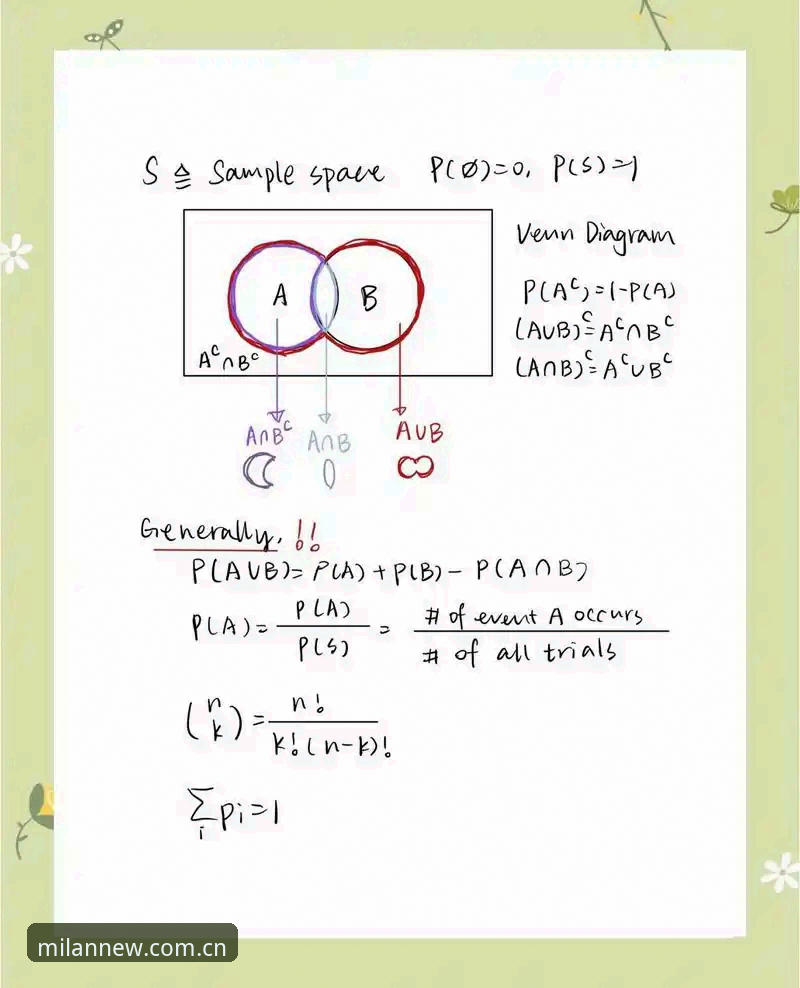 S ≙ Sample space P(∅)=0, P(S)=1
Venn Diagram
A B
P(Aᶜ)=1-P(A)
(A∪B)ᶜ=Aᶜ∩Bᶜ
Aᶜ∩Bᶜ
(A∩B)ᶜ=Aᶜ∪Bᶜ
A∩Bᶜ A∩B A∪B
Generally, !!
P(A∪B)=P(A)+P(B)-P(A∩B)
P(A)=P(A)/P(S)=# of event A occurs/# of all trials
(n k)=n!/k!(n-k)!
∑i pi=1
milannew.com.cn